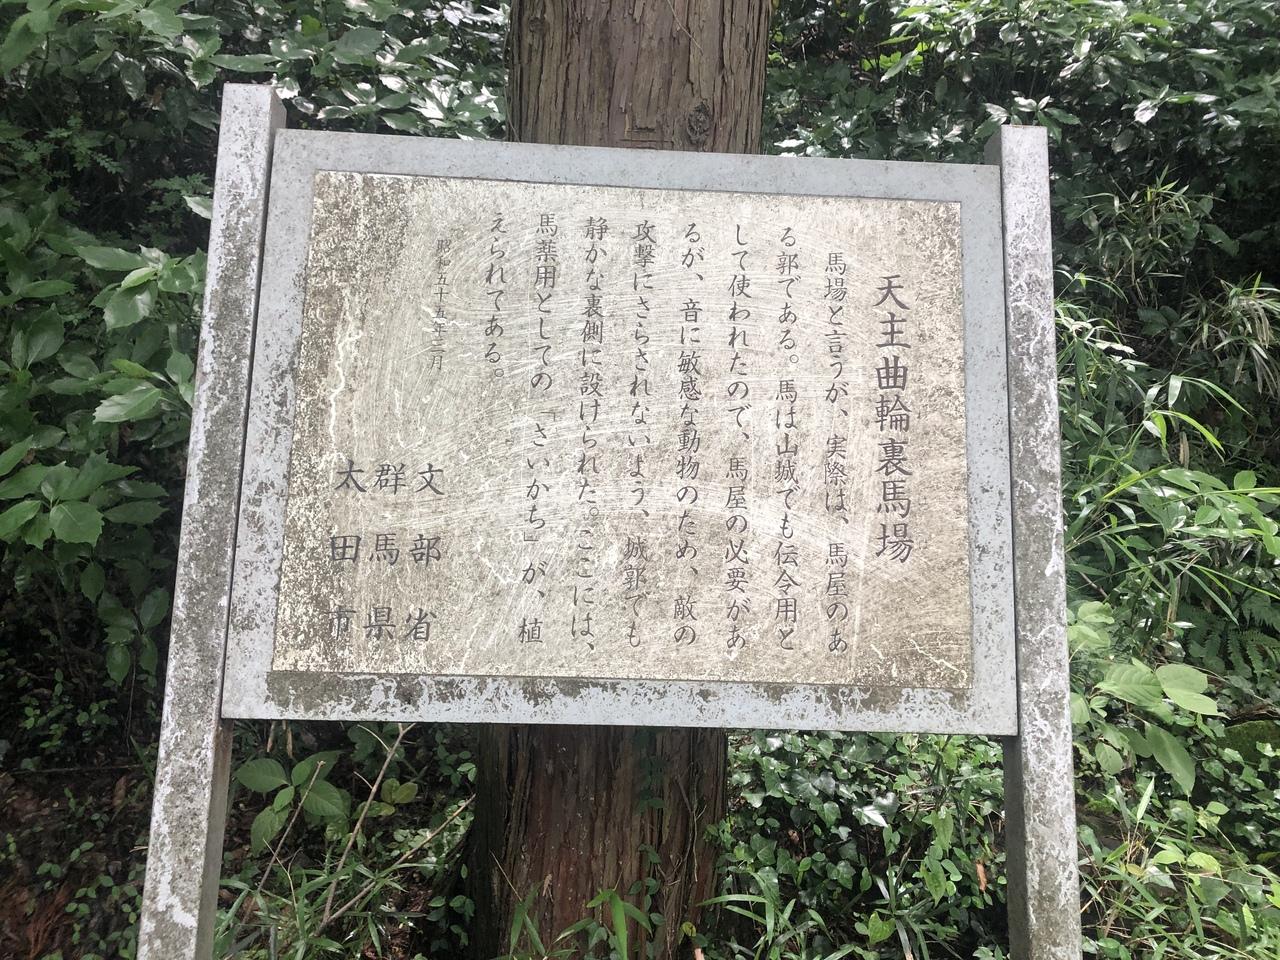 天主曲輪裏馬場
馬場と言うが、実際は、馬屋のあ
る郭である。馬は山城でも伝令用と
して使われたので、馬屋の必要があ
るが、音に敏感な動物のため、敵の
攻撃にさらされないよう、城郭でも
静かな裏側に設けられた。ここには、
馬薬用としての「さいかち」が、植
えられてある。
昭和五十五年三月
文部省
群馬県
太田市